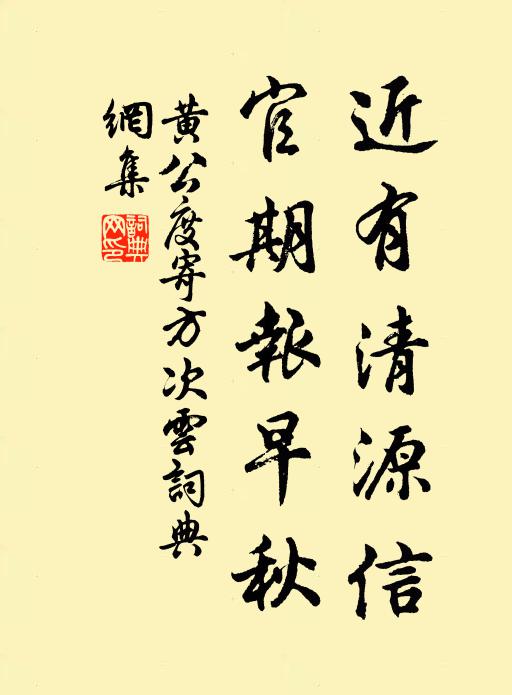 近有清源信
官期報早秋
黄公度寄方次雲詞典
網集
詞典
网印